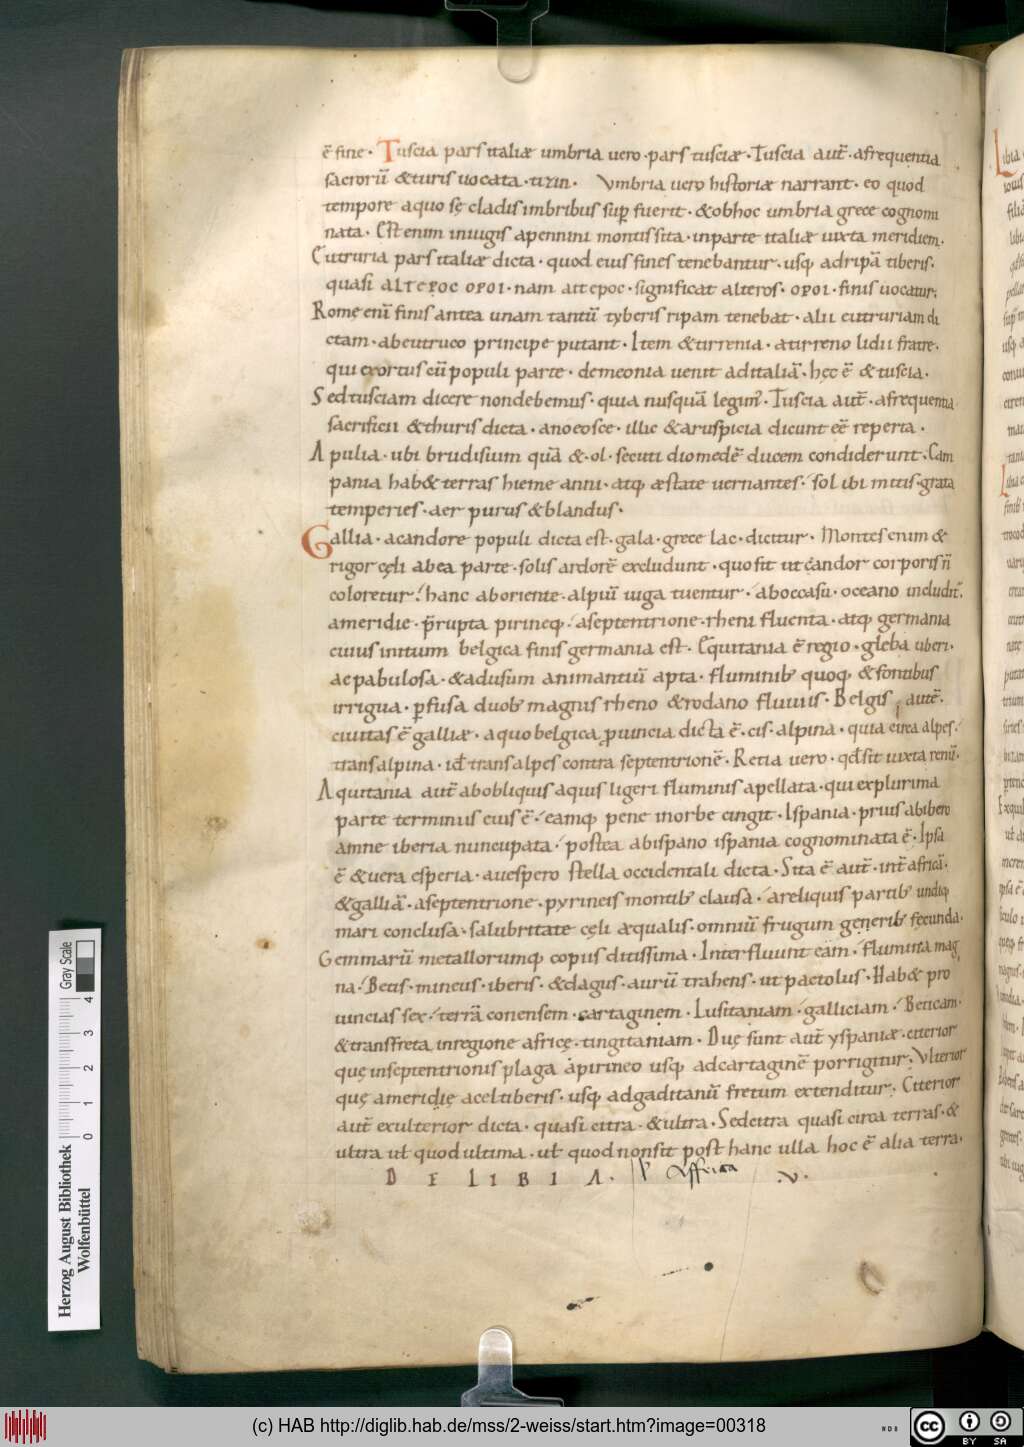 ē fine· Tuscia pars italiæ umbria uero·pars tusciæ·Tuscia aut̄·afrequentia
sacrorū &turis uocata·tizin· Vmbria uero historiæ narrant·eo quod
tempore aquo sę cladis imbribus sup̱ fuerit·&obhoc umbria grece cognomi
nata· Est enim iniugis apennini montis sita·inparte italiæ iuxta meridiem.
Eutruria pars italiæ dicta·quod eius fines tenebantur·usq; adripā tiberis·
quasi alteroc oroi·nam aitepoc·significat alteros·opoi·finis uocatur;
Romę enī finis antea unam tantū tyberis ripam tenebat·alii eutruriam di
ctam·abeutruco principe putant·Item &tirrenia·atirreno lidii fratre·
qui exortus cū populi parte·demeonia uenit aditaliā·hęc ē &tuscia·
Sedtusciam dicere nondebemus·quia nusquā legim̄·Tuscia aut̄·afrequentia
sacrificii &thuris dicta·anoeosce·illic &aruspicia dicunt eē reperta·
Apulia·ubi brudisium quā &·ol·secuti diomedē ducem condiderunt·Cam
pania hab& terras hieme anni·atq; æstate uernantes·sol ibi mitis·grata
temperies·aer purus &blandus·
Gallia·acandore populi dicta est·gala·grece lac·dicitur· Montes enim &
rigor cęli abea parte·solis ardorē excludunt·quo fit ut candor corporis n̄
coloretur·hanc aboriente·alpiū iuga tuentur·aboccasu·oceano includit̄·
ameridie·p̄rupta pirineq;·aseptentrione·rheni fluenta·atq; germania
cuius initium belgica finis germania est·Equitania ē regio·gleba uberi·
ac pabulosa·&adusum animantiū apta·fluminib; quoq; &fontibus
irrigua·p̱fusa duob; magnis rheno &rodano fluuiis·Belgis autē·
ciuitas ē galliæ·aquo belgica p̱uincia dicta ē·cis·alpina·quia citra alpes·
transalpina·id̄ trans alpes contra septentrionē·Retia uero·qd̄ sit iuxta renū·
Aquitania aut̄ abobliquis aquis ligeri fluminis apellata·qui explurima
parte terminus eius ē·eamq; pene inorbe cingit·Ispania·prius abibero
amne iberia nuncupata·postea abispano ispania cognominata ē·Ipsa
ē &uera esperia·auespero stella occidentali dicta·Sita ē aut̄·int̄ africā·
&galliā·aseptentrione·pyrineis montib; clausa·areliquis partib; undiq;
mari conclusa·salubritate cęli æqualis·omniū frugum generib; fęcunda·
Gemmarū metallorumq; copiis ditissima·Interfluunt eam·flumina mag
na·Betis·mineus·iberis·&dagus·aurū trahens·ut pactolus·Hab& pro
uincias sex·terrā conensem·cartaginem·Lusitaniam·galliciam·Beticam·
&transfreta inregione africę·tingitaniam·Duę sunt aut̄ yspaniæ·citerior
quę inseptentrionis plaga apirineo usq; adcartaginē porrigitur·Vlterior
quę ameridię aceltiberis·usq; adgaditanū fretum extenditur·Citerior
aut̄ exulterior dicta·quasi citra·&ultra·Sedcitra quasi circa terras·&
ultra ut̄ quod ultima·ut̄ quod nonsit post hanc ulla hoc ē alia terra·
DE LIBIA· Affrica ·V·
Herzog August Bibliothek
Wolfenbüttel
0 1 2 3 4
Gray Scale
(c) HAB http://diglib.hab.de/mss/2-weiss/start.htm?image=00318
cc BY SA